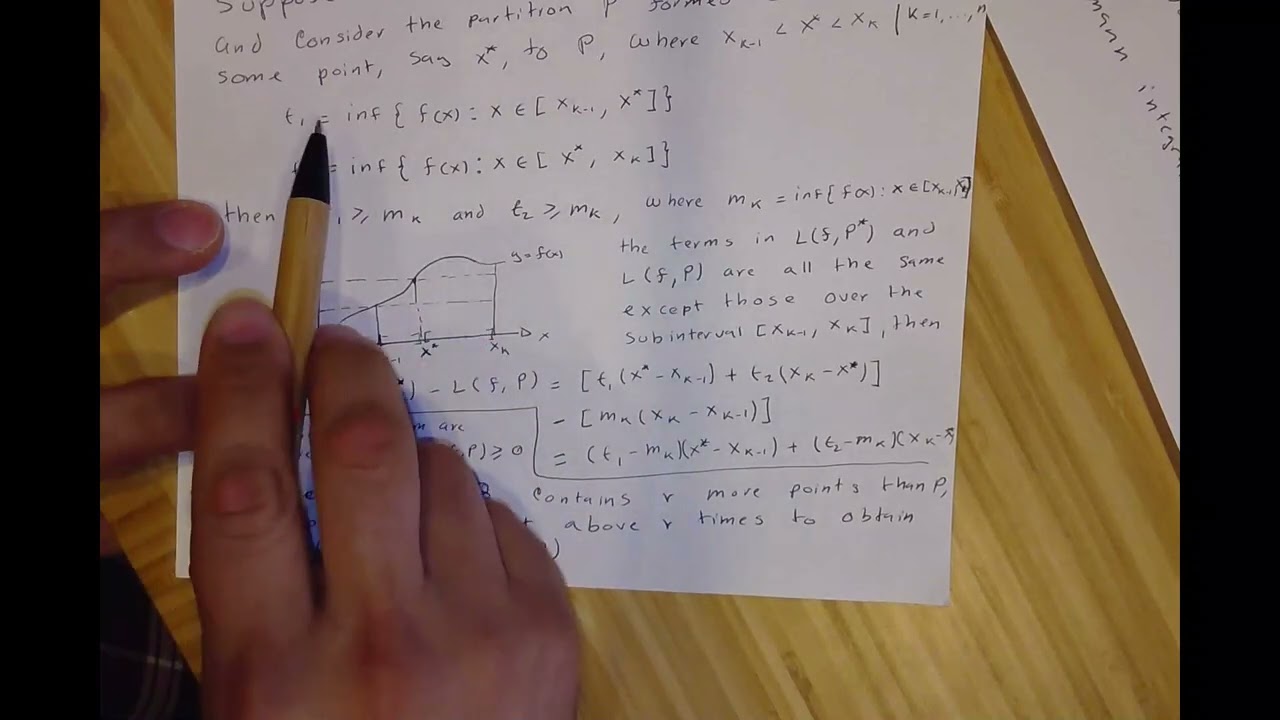 Suppos
and consider the partition P formed
some point, say x*, to P, where x_{k-1} < x* < x_k | k=1,...,n
t_1 = inf { f(x) : x ∈ [ x_{k-1}, x* ] }
= inf { f(x) : x ∈ [ x*, x_k ] }
then ≥ m_k and t_2 ≥ m_k, where m_k = inf{ f(x) : x ∈ [x_{k-1}, x_k]
y = f(x)
x* x_k x
the terms in L(f, P*) and
L(f, P) are all the same
except those over the
subinterval [x_{k-1}, x_k], then
*) - L(f, P) = [t_1(x* - x_{k-1}) + t_2(x_k - x*)]
- [m_k(x_k - x_{k-1})]
= (t_1 - m_k)(x* - x_{k-1}) + (t_2 - m_k)(x_k - x
are
P) ≥ 0
contains r more points than P,
above r times to obtain
)